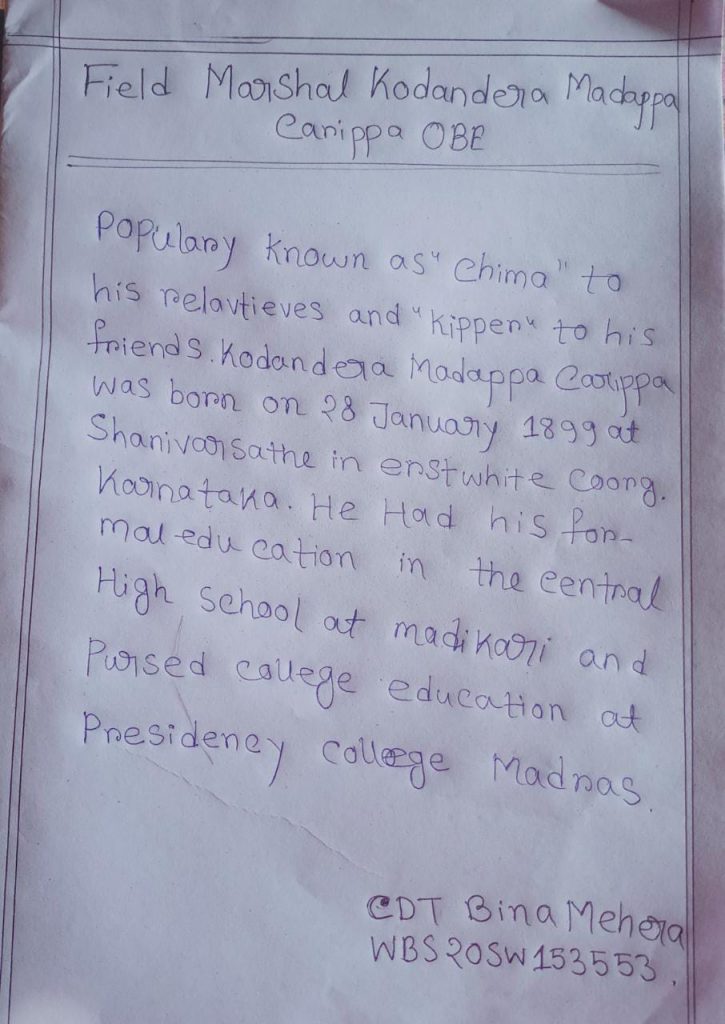 Field Marshal Kodandera Madappa
Carippa OBE
Populary known as "Chima" to
his relavtieves and "Kipper" to his
friends. Kodandera Madappa Carippa
was born on 28 January 1899 at
Shanivarsathe in erstwhite Coorg.
Karnataka. He Had his for-
mal edu cation in the central
High school at madikari and
Pursed college education at
Presidency college Madras.
CDT Bina Mehera
WBS20SW153553.